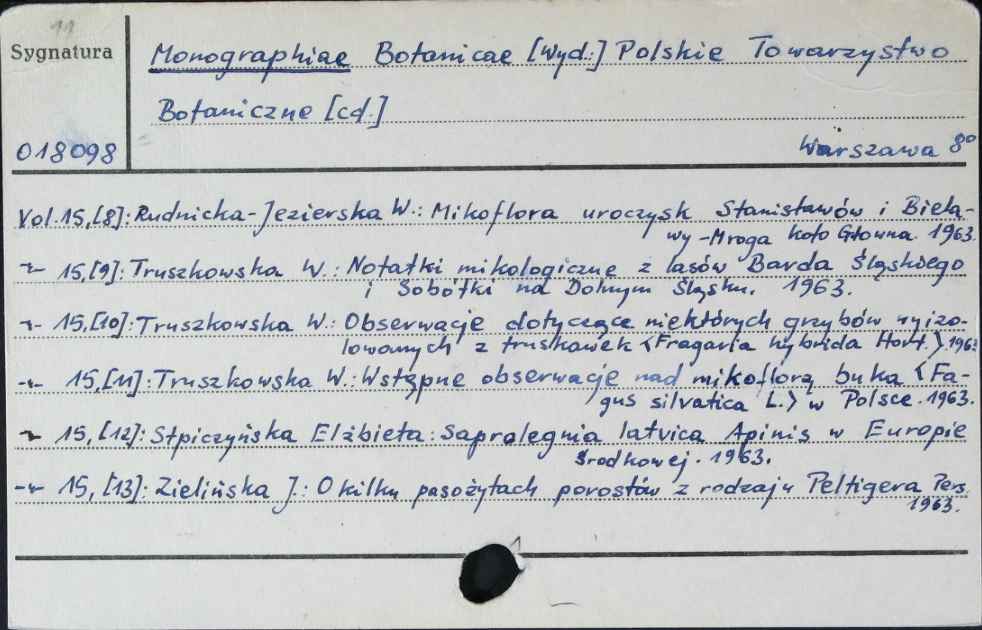 11
Sygnatura
Monographiae Botanicae [wyd:] Polskie Towarzystwo
Botaniczne [cd.]
018098
Warszawa 8°
Vol. 15,[8]: Rudnicka-Jezierska W.: Mikoflora uroczysk Stanisławów i Biela-
wy - Mroga koło Głowna. 1963.
-"- 15,[9]: Truszkowska W.: Notatki mikologiczne z lasów Barda Śląskiego
i Sobótki na Dolnym Śląsku. 1963.
-"- 15,[10]: Truszkowska W.: Obserwacje dotyczące niektórych grzybów wyizo-
lowanych z truskawek <Fragaria hybrida Hort.> 1963
-"- 15,[11]: Truszkowska W.: Wstępne obserwacje nad mikoflorą buka <Fa-
gus silvatica L.> w Polsce. 1963.
-"- 15,[12]: Stpiczyńska Elżbieta: Saprolegnia latvica Apinis w Europie
Środkowej. 1963.
-"- 15,[13]: Zielińska J.: O kilku pasożytach porostów z rodzaju Peltigera Pers.
1963.